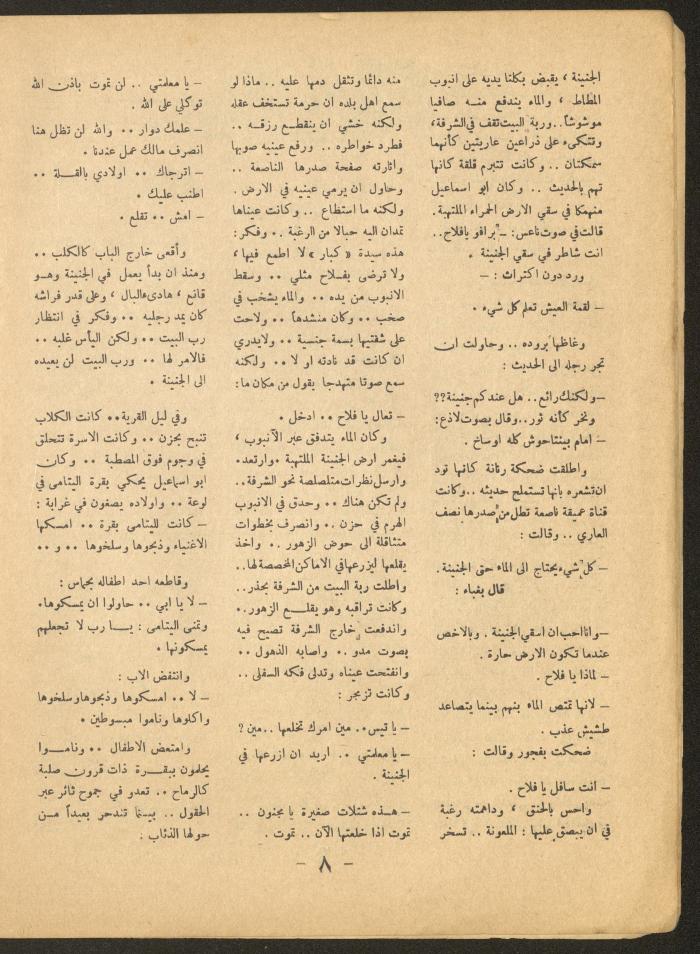 الجنينة ، يقبض بكلتا يديه على انبوب
المطاط ، والماء يندفع منه صافيا
موشوشاً .. وربة البيت تقف في الشرفة ،
وتتكىء على ذراعين عاريتين كأنهما
سمكتان .. وكانت تتبرم قلقة كانها
تهم بالحديث .. وكان ابو اسماعيل
منهمكا في سقي الارض الحمراء الملتهبة .
قالت في صوت ناعس : – برافو يا فلاح ..
انت شاطر في سقي الجنينة .
ورد دون اكتراث : –
– لقمة العيش تعلم كل شيء .
وغاظها بروده .. وحاولت ان
تجر رجله الى الحديث :
– ولكنك رائع .. هل عندكم جنينة ؟؟
ونخر كأنه ثور .. وقال بصوت لاذع :
– امام بيتنا حوش كله اوساخ .
واطلقت ضحكة رنانة كانها تود
ان تشعره بانها تستملح حديثه .. وكانت
قناة عميقة ناصعة تطل من صدرها نصف
العاري .. وقالت :
– كل شيء يحتاج الى الماء حتى الجنينة .
قال بغباء :
– وانا احب ان اسقي الجنينة . وبالاخص
عندما تكون الارض حارة .
– لماذا يا فلاح .
– لانها تمتص الماء بنهم بينما يتصاعد
طشيش عذب .
ضحكت بفجور وقالت :
– انت سافل يا فلاح .
واحس بالحنق ، وداهمته رغبة
في ان يبصق عليها : الملعونة .. تسخر
منه دائما وتثقل دمها عليه .. ماذا لو
سمع اهل بلده ان حرمة تستخف عقله
ولكنه خشي ان ينقطع رزقه ..
فطرد خواطره .. ورفع عينيه صوبها
واثارته صفحة صدرها الناصعة ..
وحاول ان يرمي عينيه في الارض .
ولكنه ما استطاع .. وكانت عيناها
تمدان اليه حبالا من الرغبة .. وفكر :
هذه سيدة « كبار » لا اطمع فيها ،
ولا ترضى بفلاح مثلي .. وسقط
الانبوب من يده .. والماء يشخب في
صخب .. وكان منشدهاً .. ولاحت
على شفتيها بسمة جنسية .. ولا يدري
ان كانت قد نادته او لا .. ولكنه
سمع صوتا متهدجا يقول من مكان ما :
– تعال يا فلاح .. ادخل .
وكان الماء يتدفق عبر الانبوب ،
فيغمر ارض الجنينة الملتهبة . وارتعد .
وارسل نظرات متلصلصة نحو الشرفة ..
ولم تكن هناك .. وحدق في الانبوب
الهرم في حزن .. وانصرف بخطوات
متثاقلة الى حوض الزهور .. واخذ
يقلعها ليزرعها في الاماكن المخصصة لها ..
واطلت ربة البيت من الشرفة بحذر ..
وكانت تراقبه وهو يقلع الزهور ..
واندفعت خارج الشرفة تصيح فيه
بصوت مدو .. واصابه الذهول ..
وانفتحت عيناه وتدلى فكه السفلى ..
وكانت تزمجر :
– يا تيس . مين امرك تخلعها .. مين ؟
– يا معلمتي .. اريد ان ازرعها في
الجنينة .
– هذه شتلات صغيرة يا مجنون ..
تموت اذا خلعتها الآن .. تموت .
– يا معلمتي .. لن تموت باذن الله
توكلي على الله .
– علمك دوار .. والله لن تظل هنا
انصرف مالك عمل عندنا .
– اترجاك .. اولادي بالقلة ..
اطنب عليك .
– امش .. تقلع .
وأقعى خارج الباب كالكلب ..
ومنذ ان بدأ يعمل في الجنينة وهو
قانع ، هادىء البال ، وعلى قدر فراشه
كان يمد رجليه .. وفكر في انتظار
رب البيت .. ولكن اليأس غلبه ..
فالامر لها .. ورب البيت لن يعيده
الى الجنينة .
وفي ليل القرية .. كانت الكلاب
تنبح بحزن .. وكانت الاسرة تتحلق
في وجوم فوق المصطبة .. وكان
ابو اسماعيل يحكي بقرة اليتامى في
لوعة .. واولاده يصغون في غرابة :
– كانت لليتامى بقرة .. امسكها
الاغنياء وذبحوها وسلخوها .. و ..
وقاطعه احد اطفاله بحماس :
– لا يا ابي .. حاولوا ان يمسكوها .
وتمنى اليتامى : يا رب لا تجعلهم
يمسكونها .
وانتفض الاب :
– لا .. امسكوها وذبحوها وسلخوها
واكلوها وناموا مبسوطين .
وامتعض الاطفال .. وناموا
يحلمون ببقرة ذات قرون صلبة
كالرماح .. تعدو في جموح ثائر عبر
الحقول .. بينما تندحر بعيداً من
حولها الذئاب .
– ٨ –